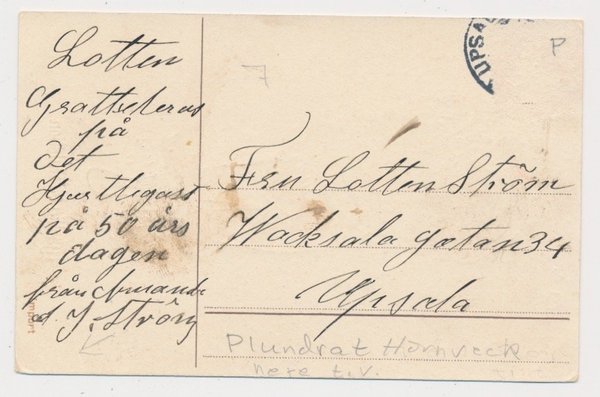 Lotten
Grattuleras
på
det
Hjertligast
på 50 års
dagen
från Amanda
J. Ström
Fru Lotten Ström
Wacksala gatan 34
Upsala
UPSA
P
7
Plundrat Hörnveck
nere t.v.